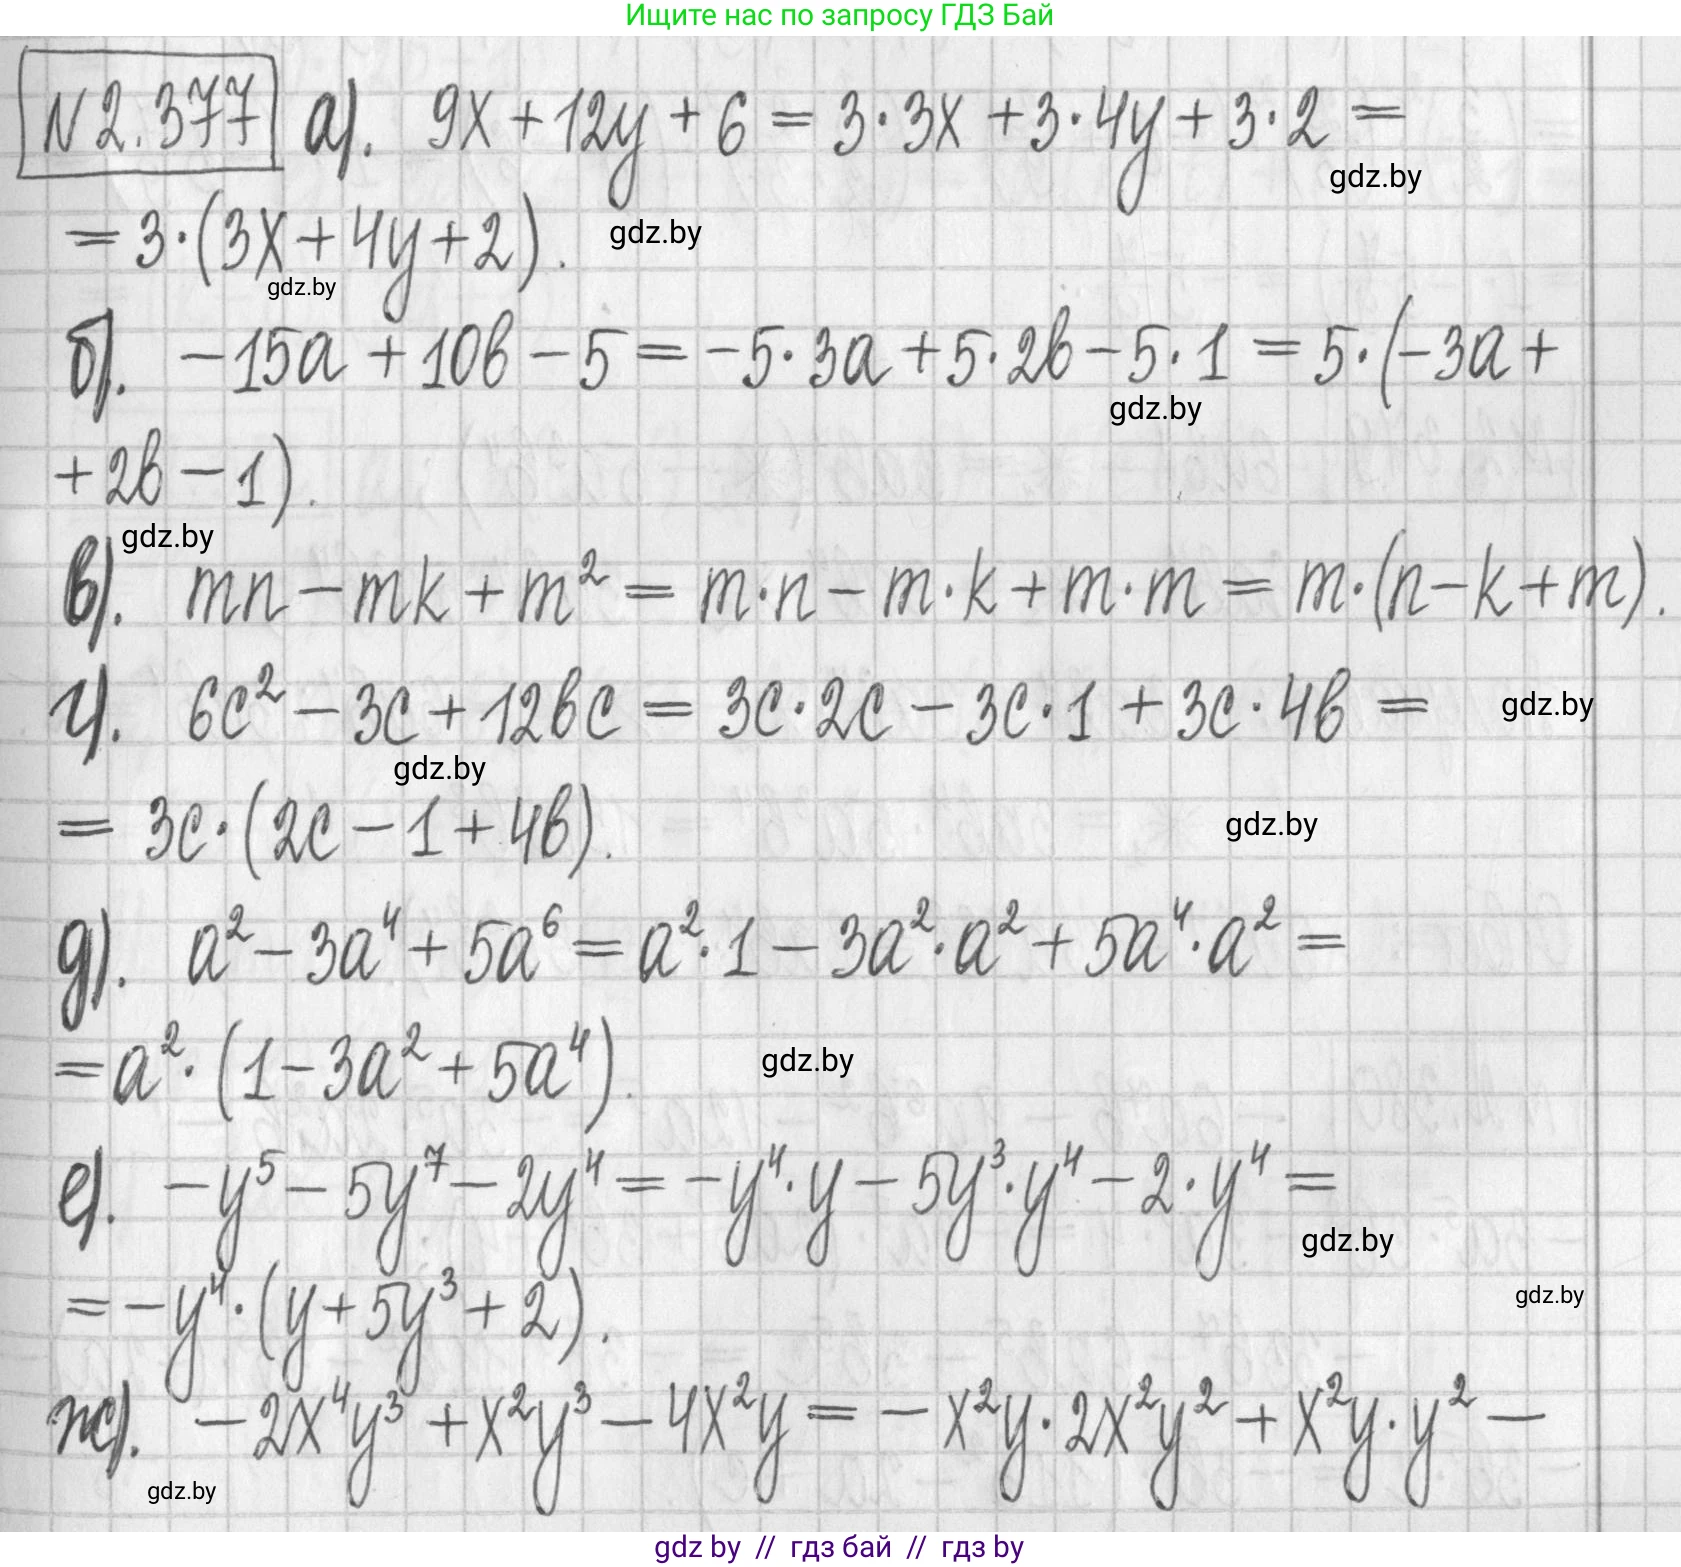 Ищите нас по запросу ГДЗ Бай
N 2.377 а). 9x + 12y + 6 = 3·3x + 3·4y + 3·2 =
gdz.by
= 3·(3x + 4y + 2).
gdz.by
gdz.by
б). -15a + 10b - 5 = -5·3a + 5·2b - 5·1 = 5·(-3a +
gdz.by
+ 2b - 1).
gdz.by
в). mn - mk + m² = m·n - m·k + m·m = m·(n - k + m).
г). 6c² - 3c + 12bc = 3c·2c - 3c·1 + 3c·4b =
gdz.by
gdz.by
= 3c·(2c - 1 + 4b).
gdz.by
д). a² - 3a⁴ + 5a⁶ = a²·1 - 3a²·a² + 5a⁴·a² =
= a²·(1 - 3a² + 5a⁴).
gdz.by
е). -y⁵ - 5y⁷ - 2y⁴ = -y⁴·y - 5y³·y⁴ - 2·y⁴ =
gdz.by
= -y⁴·(y + 5y³ + 2).
gdz.by
ж). -2x⁴y³ + x²y³ - 4x²y = -x²y·2x²y² + x²y·y² -
gdz.by
gdz by // гдз бай // гдз by